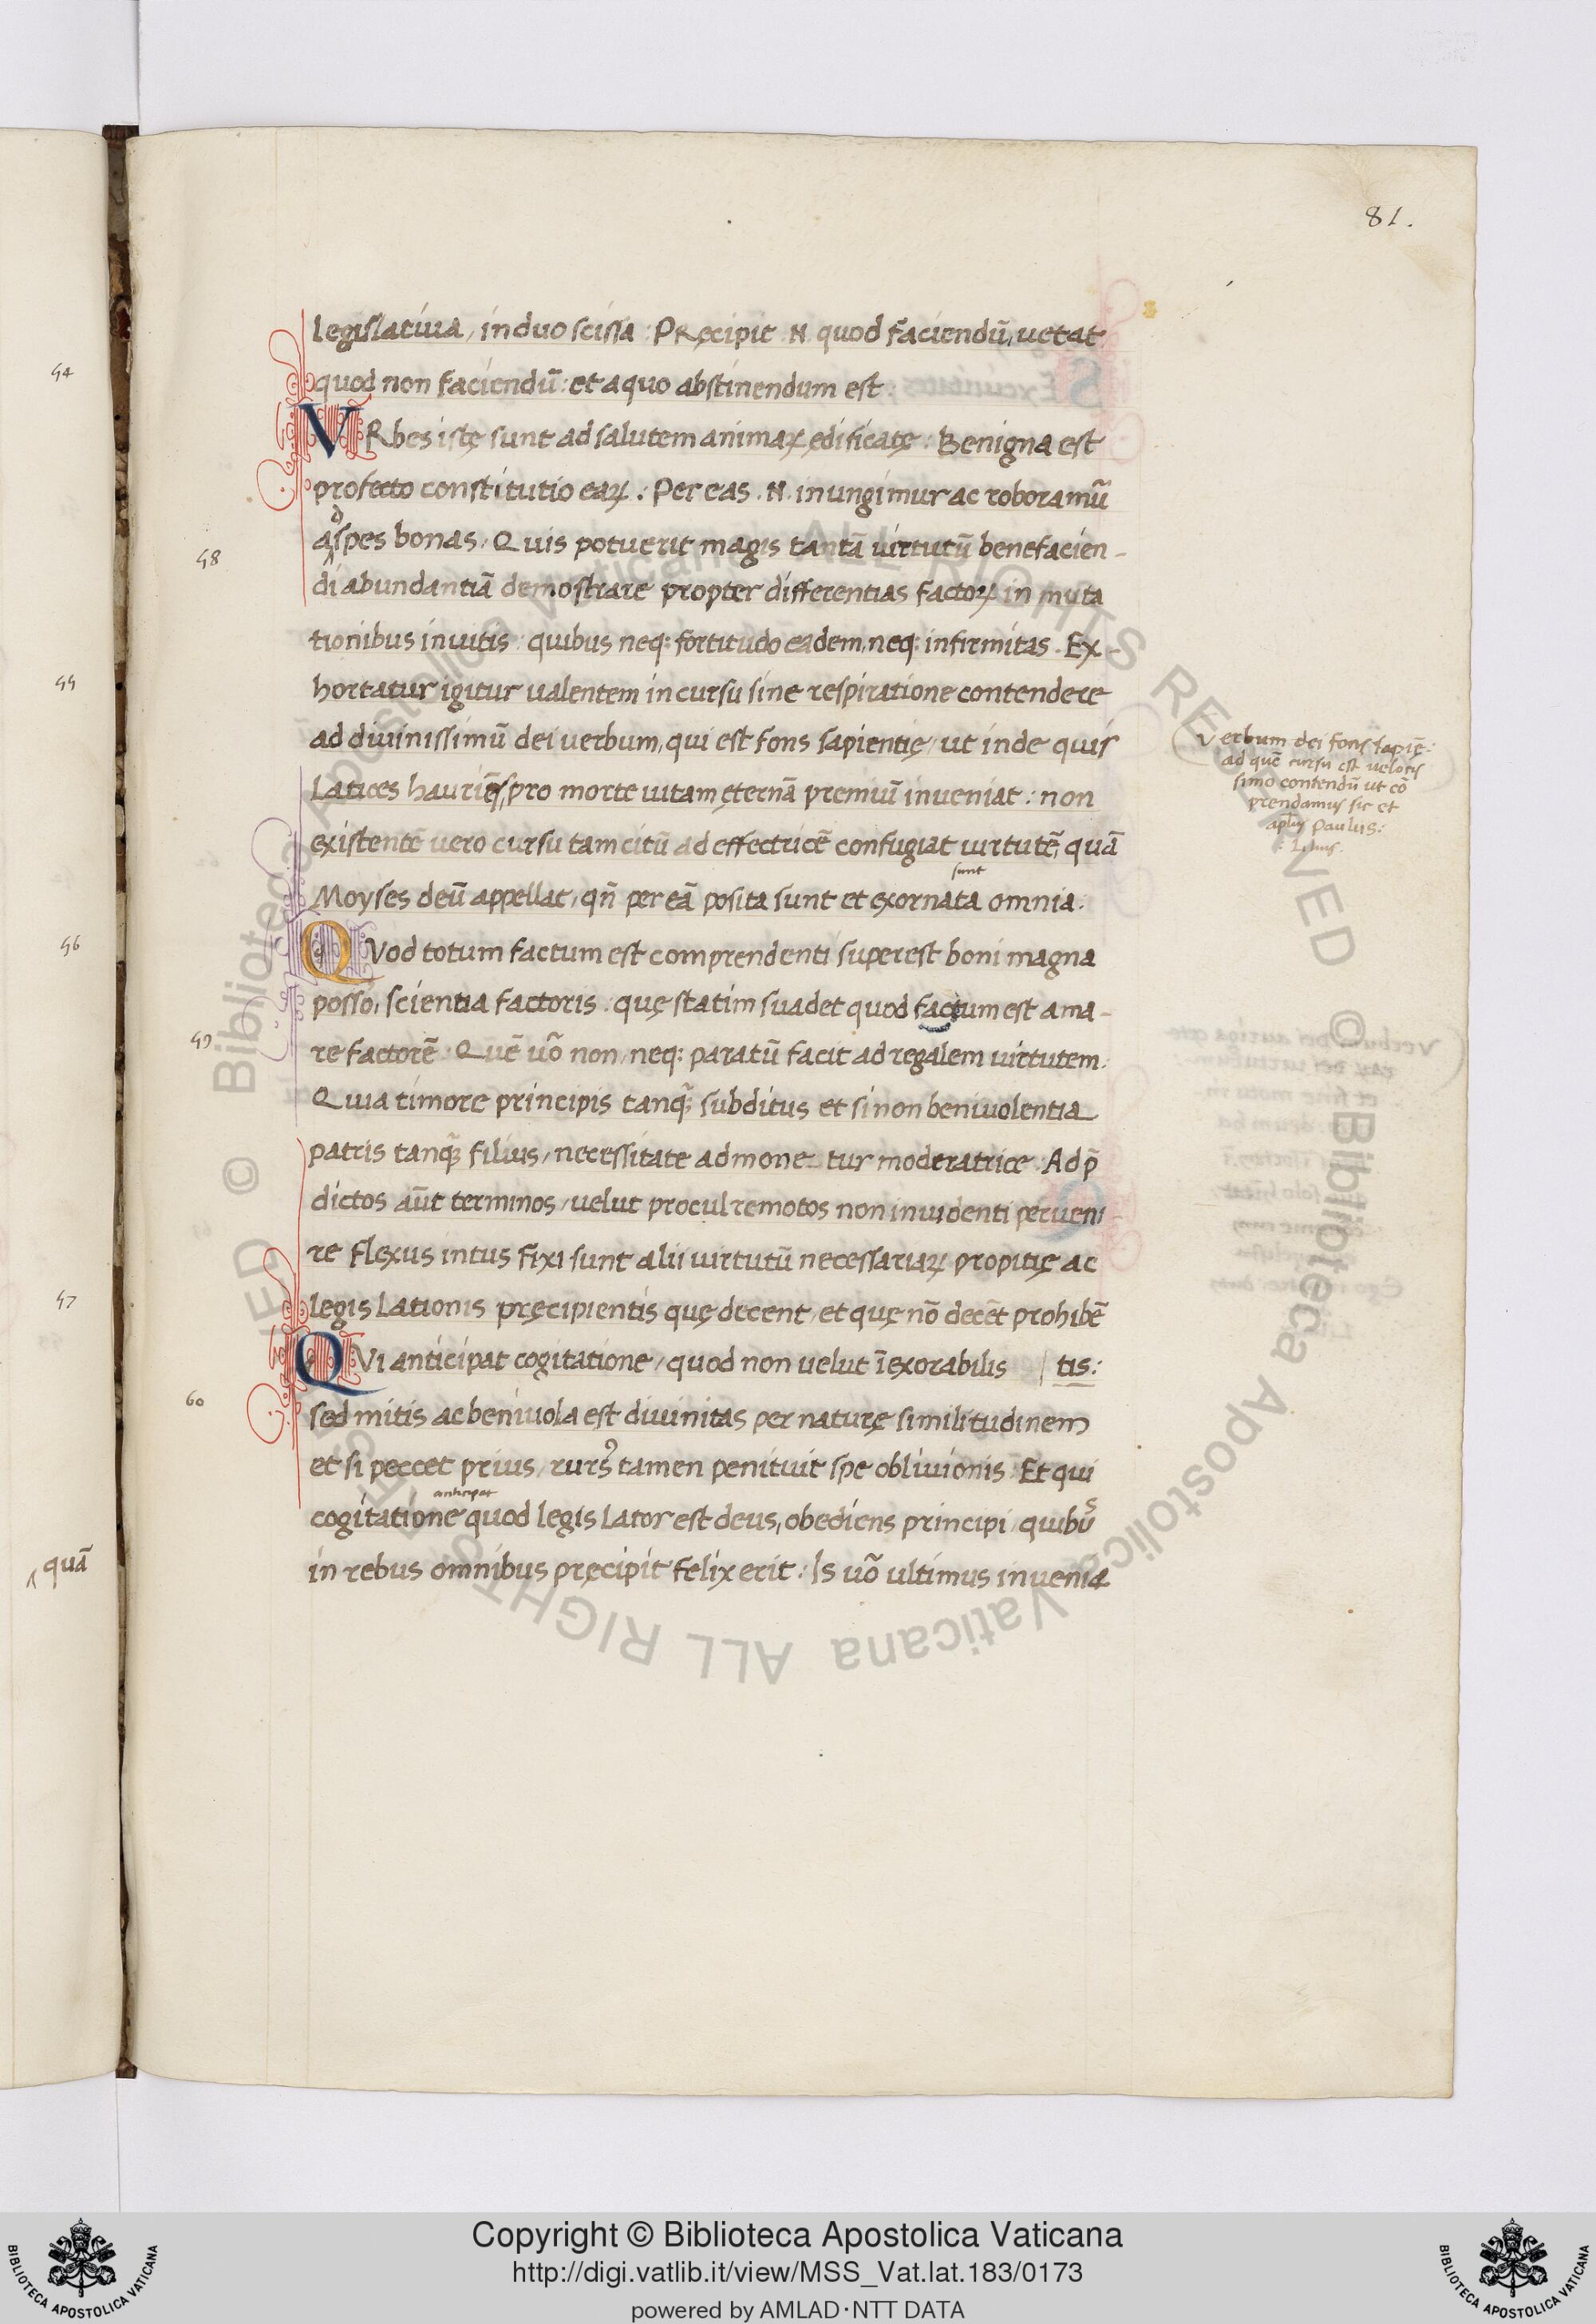 81.
legislatiua, in duo scissa : PRęcipit .N. quod faciendū, uetat
quod non faciendū : et a quo abstinendum est :
VRbes istę sunt ad salutem animaꝝ ędificatę : Benigna est
profecto constitutio eaꝝ : Per eas .N. inungimur ac roboramū
ad spes bonas, Quis potuerit magis tantā uirtutū benefacien-
di abundantiā demostrare propter differentias factoꝝ in muta
tionibus inuitis : quibus neq: fortitudo eadem, neq: infirmitas. Ex-
hortatur igitur ualentem in cursu sine respiratione contendere
ad diuinissimū dei uerbum, qui est fons sapientię, ut inde quis
Latices hauriēs, pro morte uitam ęternā premiū inueniat : non
existentē uero cursu tam citū ad effectricē confugiat uirtutē, quā
sunt
Moyses deū appellat, qn̄ per eā posita sunt et exornata omnia :
QVod totum factum est comprendenti superest boni magna
posso, scientia factoris : quę statim suadet quod factum est ama-
re factorē : Quē uō non, neq: paratū facit ad regalem uirtutem :
Quia timore principis tanq̄ subditus et si non beniuolentia
patris tanq̄ filius, necessitate admone-tur moderatrice : Ad p̄
dictos aūt terminos, uelut procul remotos non inuidenti perueni-
re flexus intus fixi sunt alii uirtutū necessariaꝝ propitię ac
legis Lationis pręcipientis quę decent, et quę nō decēt prohibē
QVi anticipat cogitatione, quod non uelut īexorabilis | tis :
sed mitis ac beniuola est diuinitas per naturę similitudinem
et si peccet prius, rursꝰ tamen penituit spe obliuionis : Et qui
anticipat
cogitatione quod legis Lator est deus, obediens principi, quibus
in rebus omnibus pręcipit felix erit : Is uō ultimus inueniæ
Verbum dei fons sapię :
ad quē cursu est uelocis
simo contendū ut cō
prendamus sic et
apl̄us Paulus :
54
58
55
56
59
57
60
quā
Copyright © Biblioteca Apostolica Vaticana
http://digi.vatlib.it/view/MSS_Vat.lat.183/0173
powered by AMLAD·NTT DATA
BIBLIOTECA APOSTOLICA VATICANA
BIBLIOTECA APOSTOLICA VATICANA